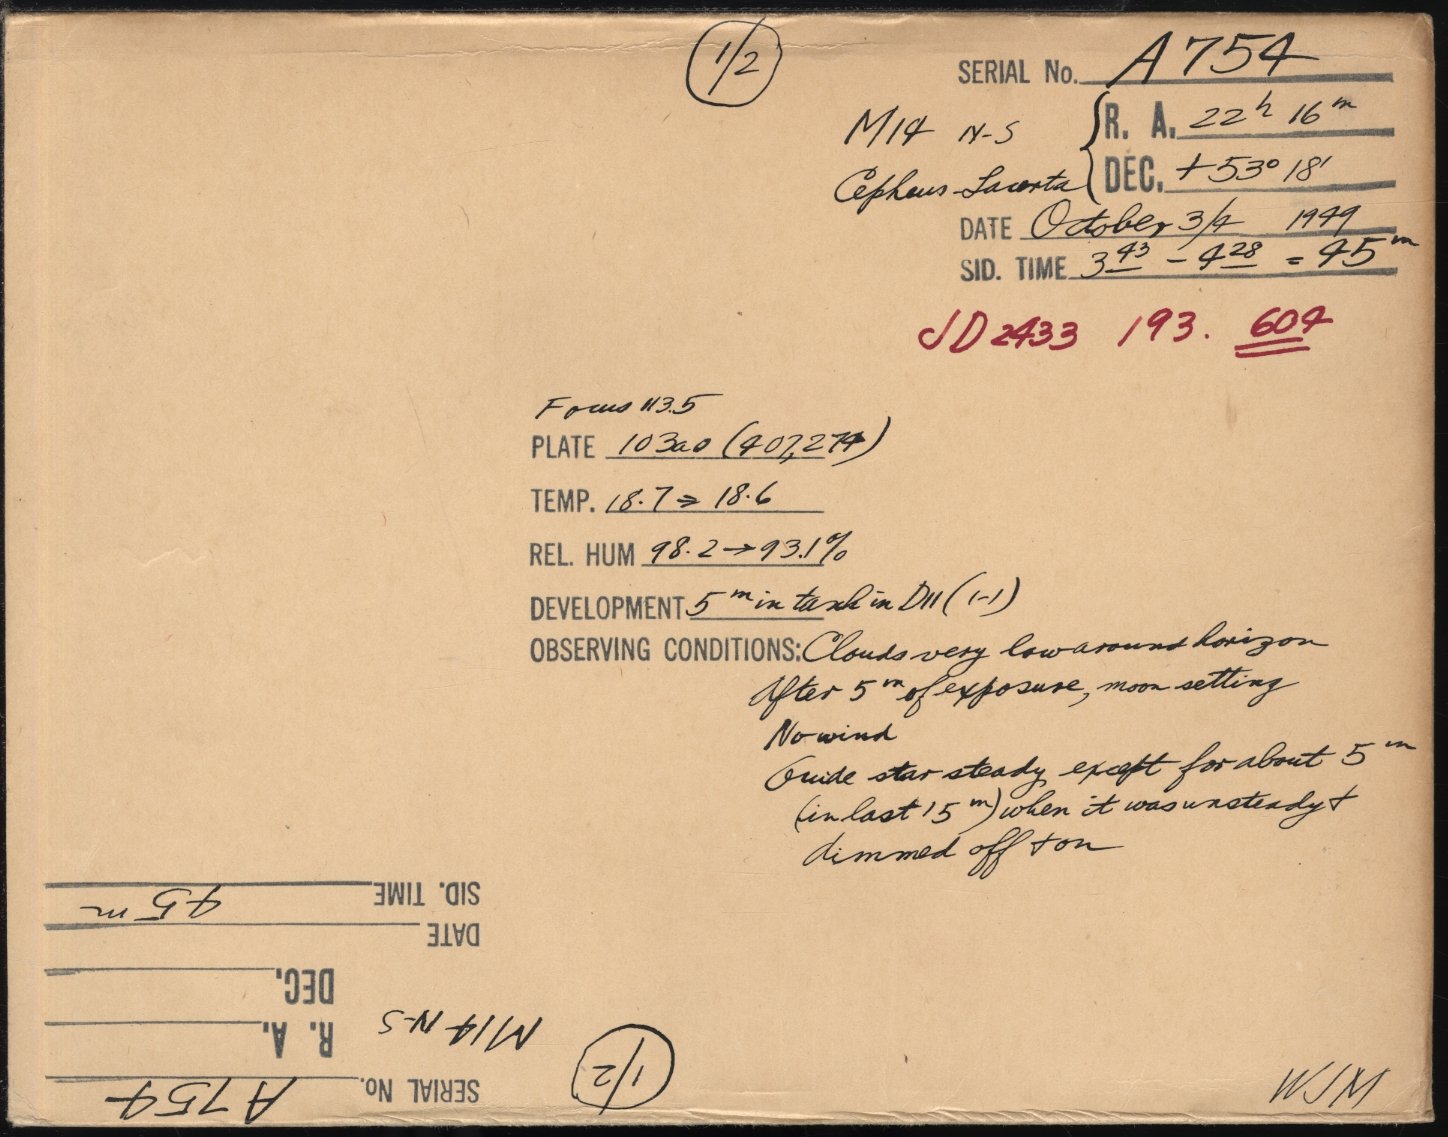 1/2
SERIAL No. A754
M14 N-S
R. A. 22h 16m
Cepheus-Lacerta
DEC. +53° 18'
DATE October 3/4 1949
SID. TIME 3 43 - 4 28 = 45m
JD 2433 193. 604
Focus 113.5
PLATE 103a0 (407,274)
TEMP. 18.7 → 18.6
REL. HUM 98.2 → 93.1%
DEVELOPMENT 5m in tank in D11 (1-1)
OBSERVING CONDITIONS: Clouds very low around horizon
After 5m of exposure, moon setting
No wind
Guide star steady except for about 5m
(in last 15m) when it was unsteady +
dimmed off + on
SERIAL No. A754
1/2
M14 N-S
R. A.
DEC.
DATE
SID. TIME 45m
WJM